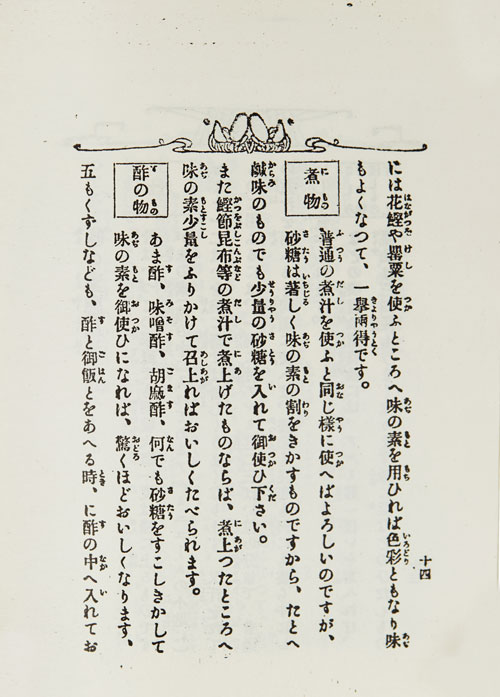 には花鰹や罌粟を使ふところへ味の素を用ひれば色彩ともなり味
もよくなつて、一擧兩得です。
煮物
普通の煮汁を使ふと同じ樣に使へばよろしいのですが、
砂糖は著しく味の素の割をきかすものですから、たとへ
鹹味のものでも少量の砂糖を入れて御使ひ下さい。
また鰹節昆布等の煮汁で煮上げたものならば、煮上つたところへ
味の素少量をふりかけて召上ればおいしくたべられます。
酢の物
あま酢、味噌酢、胡麻酢、何でも砂糖をすこしきかして
味の素を御使ひになれば、驚くほどおいしくなります、
五もくずしなども、酢と御飯とをあへる時、に酢の中へ入れてお
十四